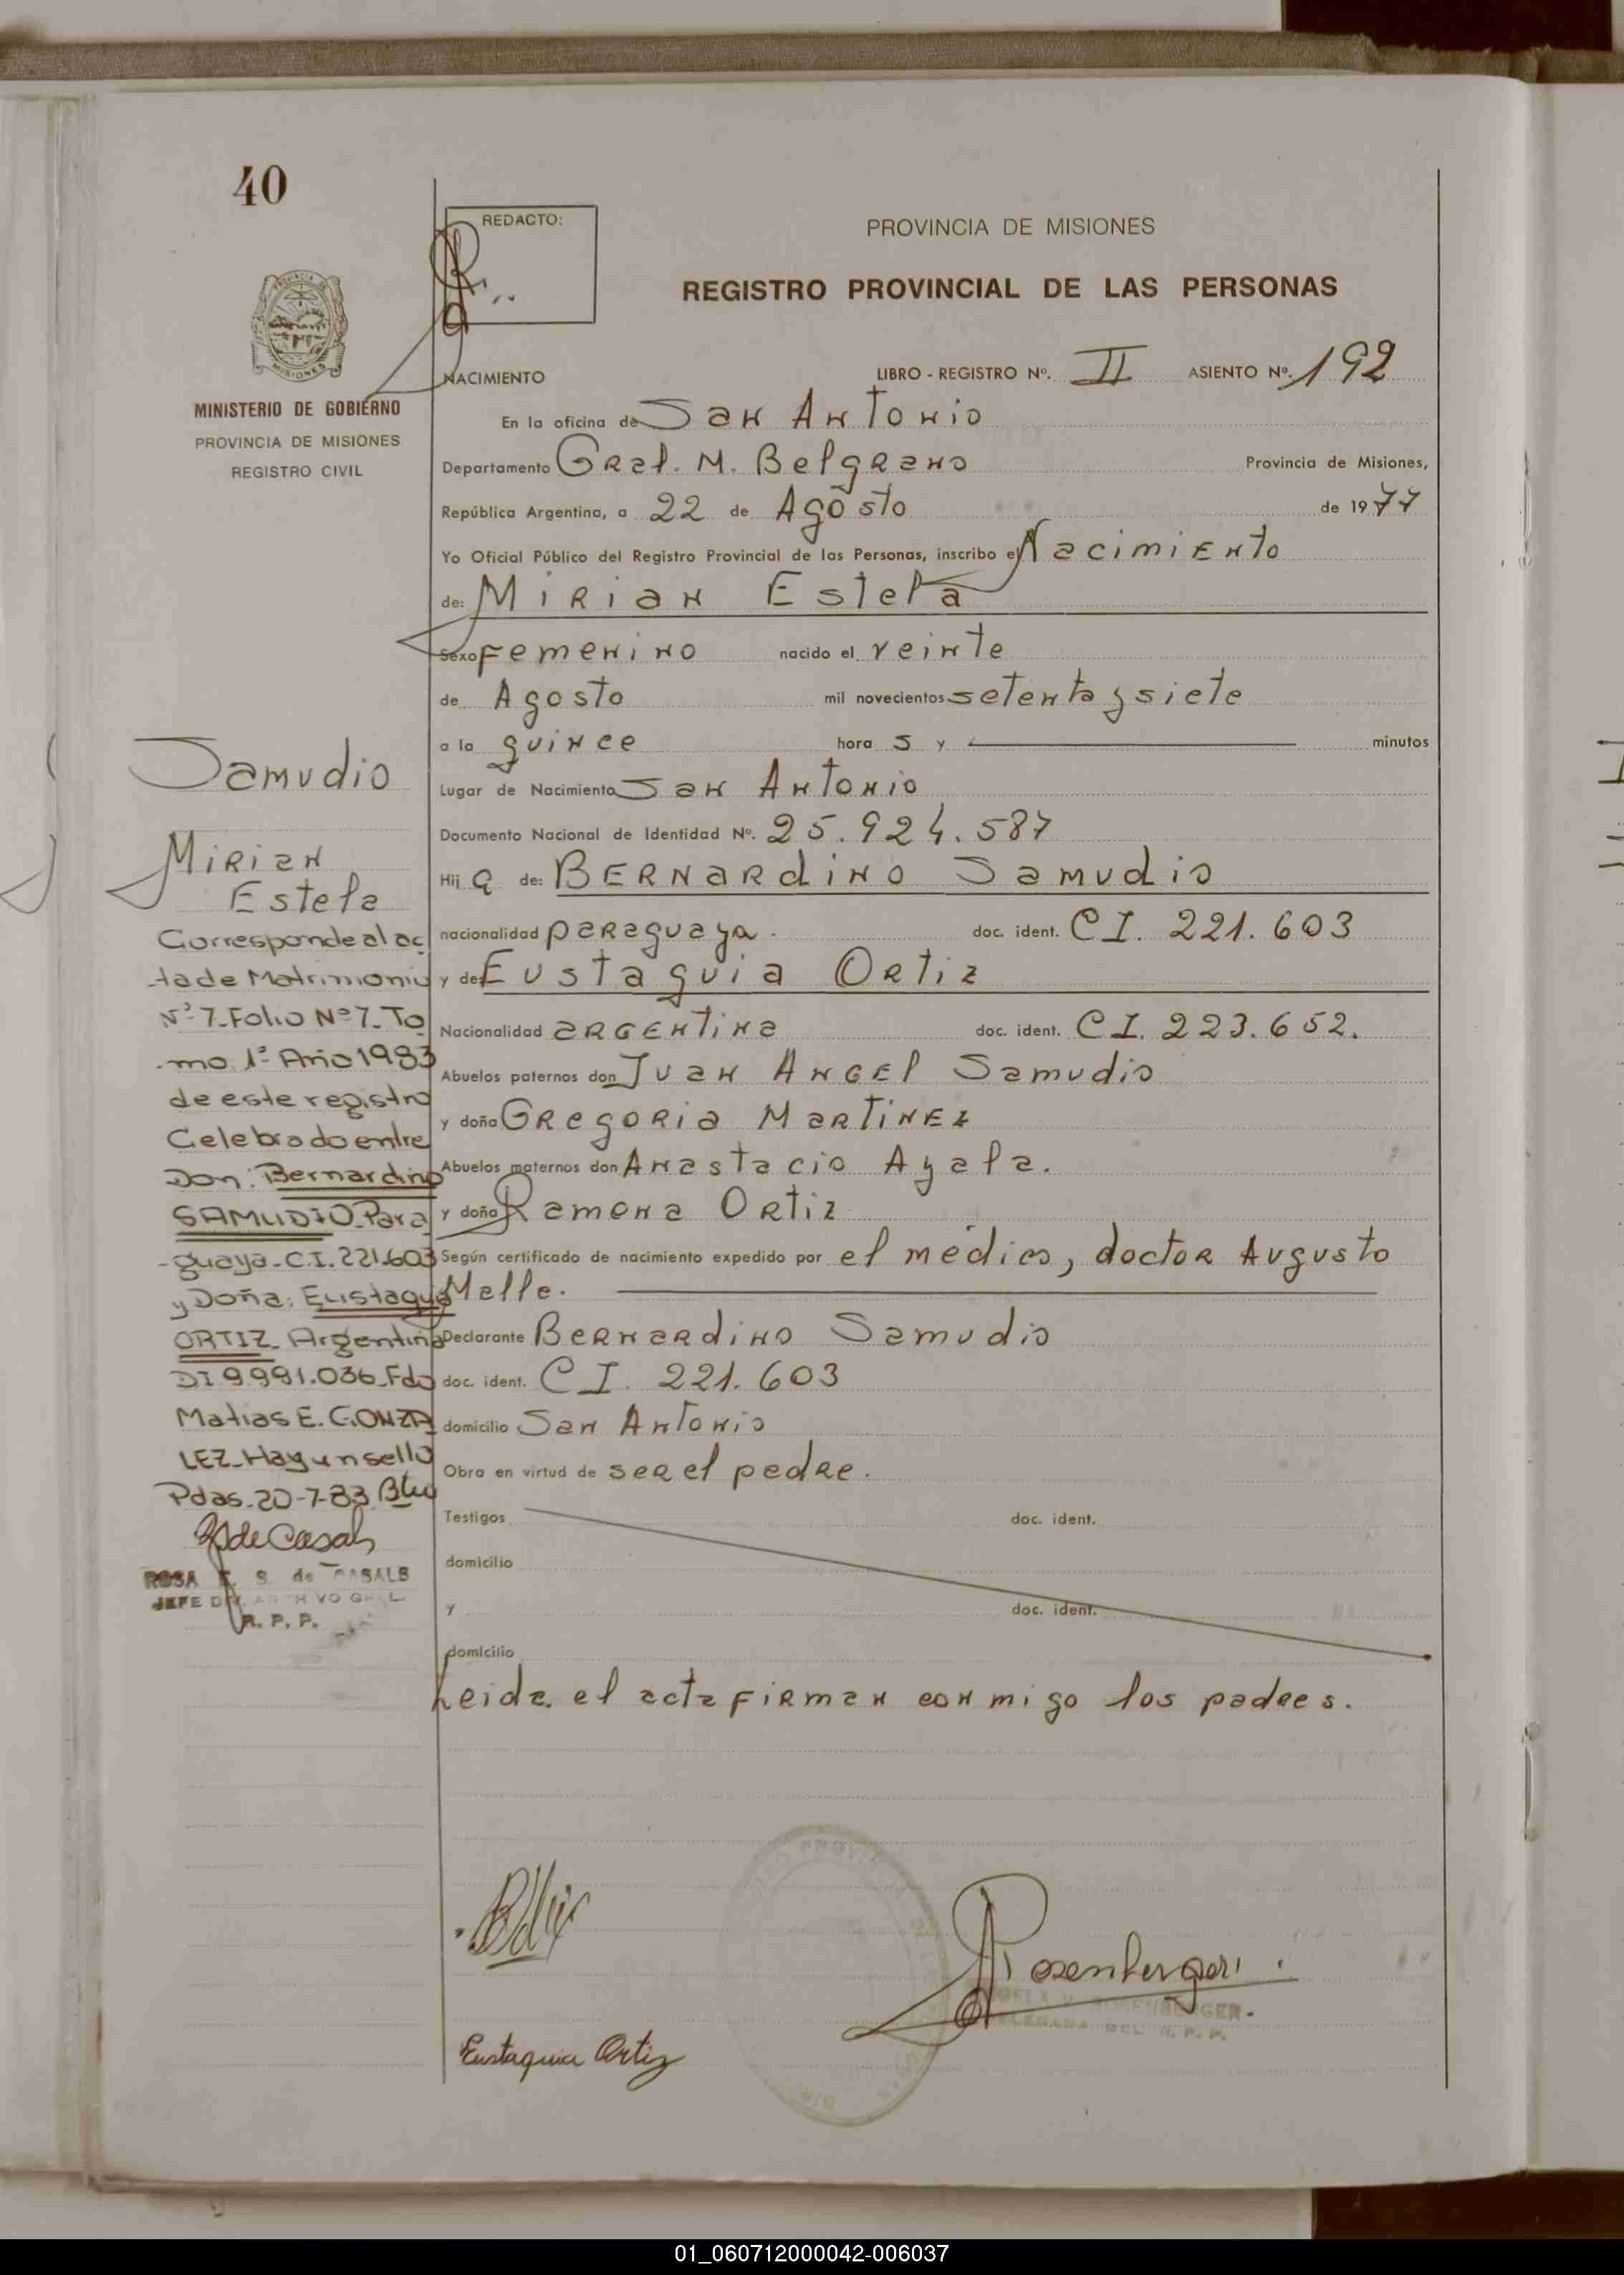 40
REDACTO:
PROVINCIA DE MISIONES
REGISTRO PROVINCIAL DE LAS PERSONAS
MINISTERIO DE GOBIERNO
PROVINCIA DE MISIONES
REGISTRO CIVIL
NACIMIENTO LIBRO - REGISTRO Nº. II ASIENTO Nº. 192
En la oficina de San Antonio
Departamento Gral. M. Belgrano Provincia de Misiones,
República Argentina, a 22 de Agosto de 1977
Yo Oficial Público del Registro Provincial de las Personas, inscribo el Nacimiento
de: Mirian Estela
Sexo Femenino nacido el veinte
de Agosto mil novecientos setenta y siete
a la quince hora s y minutos
Lugar de Nacimiento San Antonio
Documento Nacional de Identidad Nº. 25.924.587
Hij a de: Bernardino Samudio
nacionalidad paraguaya. doc. ident. CI. 221.603
y de: Eustaquia Ortiz
Nacionalidad argentina doc. ident. CI. 223.652.
Abuelos paternos don Juan Angel Samudio
y doña Gregoria Martinez
Abuelos maternos don Anastacio Ayala.
y doña Ramona Ortiz
Según certificado de nacimiento expedido por el médico, doctor Augusto
Melle.
Declarante Bernardino Samudio
doc. ident. CI. 221.603
domicilio San Antonio
Obra en virtud de ser el padre.
Testigos doc. ident.
domicilio
y doc. ident.
domicilio
Leida el acta firman conmigo los padres.
Samudio
Mirian
Estela
Corresponde al ac
ta de Matrimonio
Nº 7-Folio Nº 7-To
mo 1º Año 1983
de este registro
Celebrado entre
Don: Bernardino
SAMUDIO-Para
guaya-C.I. 221.603
y Doña: Eustaquia
ORTIZ-Argentina
DI 9.991.036-Fdo
Matias E. GONZA
LEZ-Hay un sello
Pdas-20-7-83
de Casals
ROSA E. S. de CASALS
JEFE DIV. ARCHIVO GRAL
R. P. P.
Rosenberger
ROSENBERGER.-
DELEGADA DEL R. P. P.
Eustaquia Ortiz
01_060712000042-006037